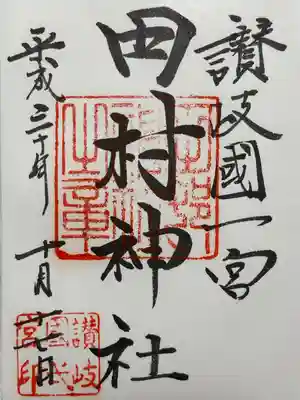 讃岐國一宮
田村神社
平成三十年 十月 日
讃岐
宮印